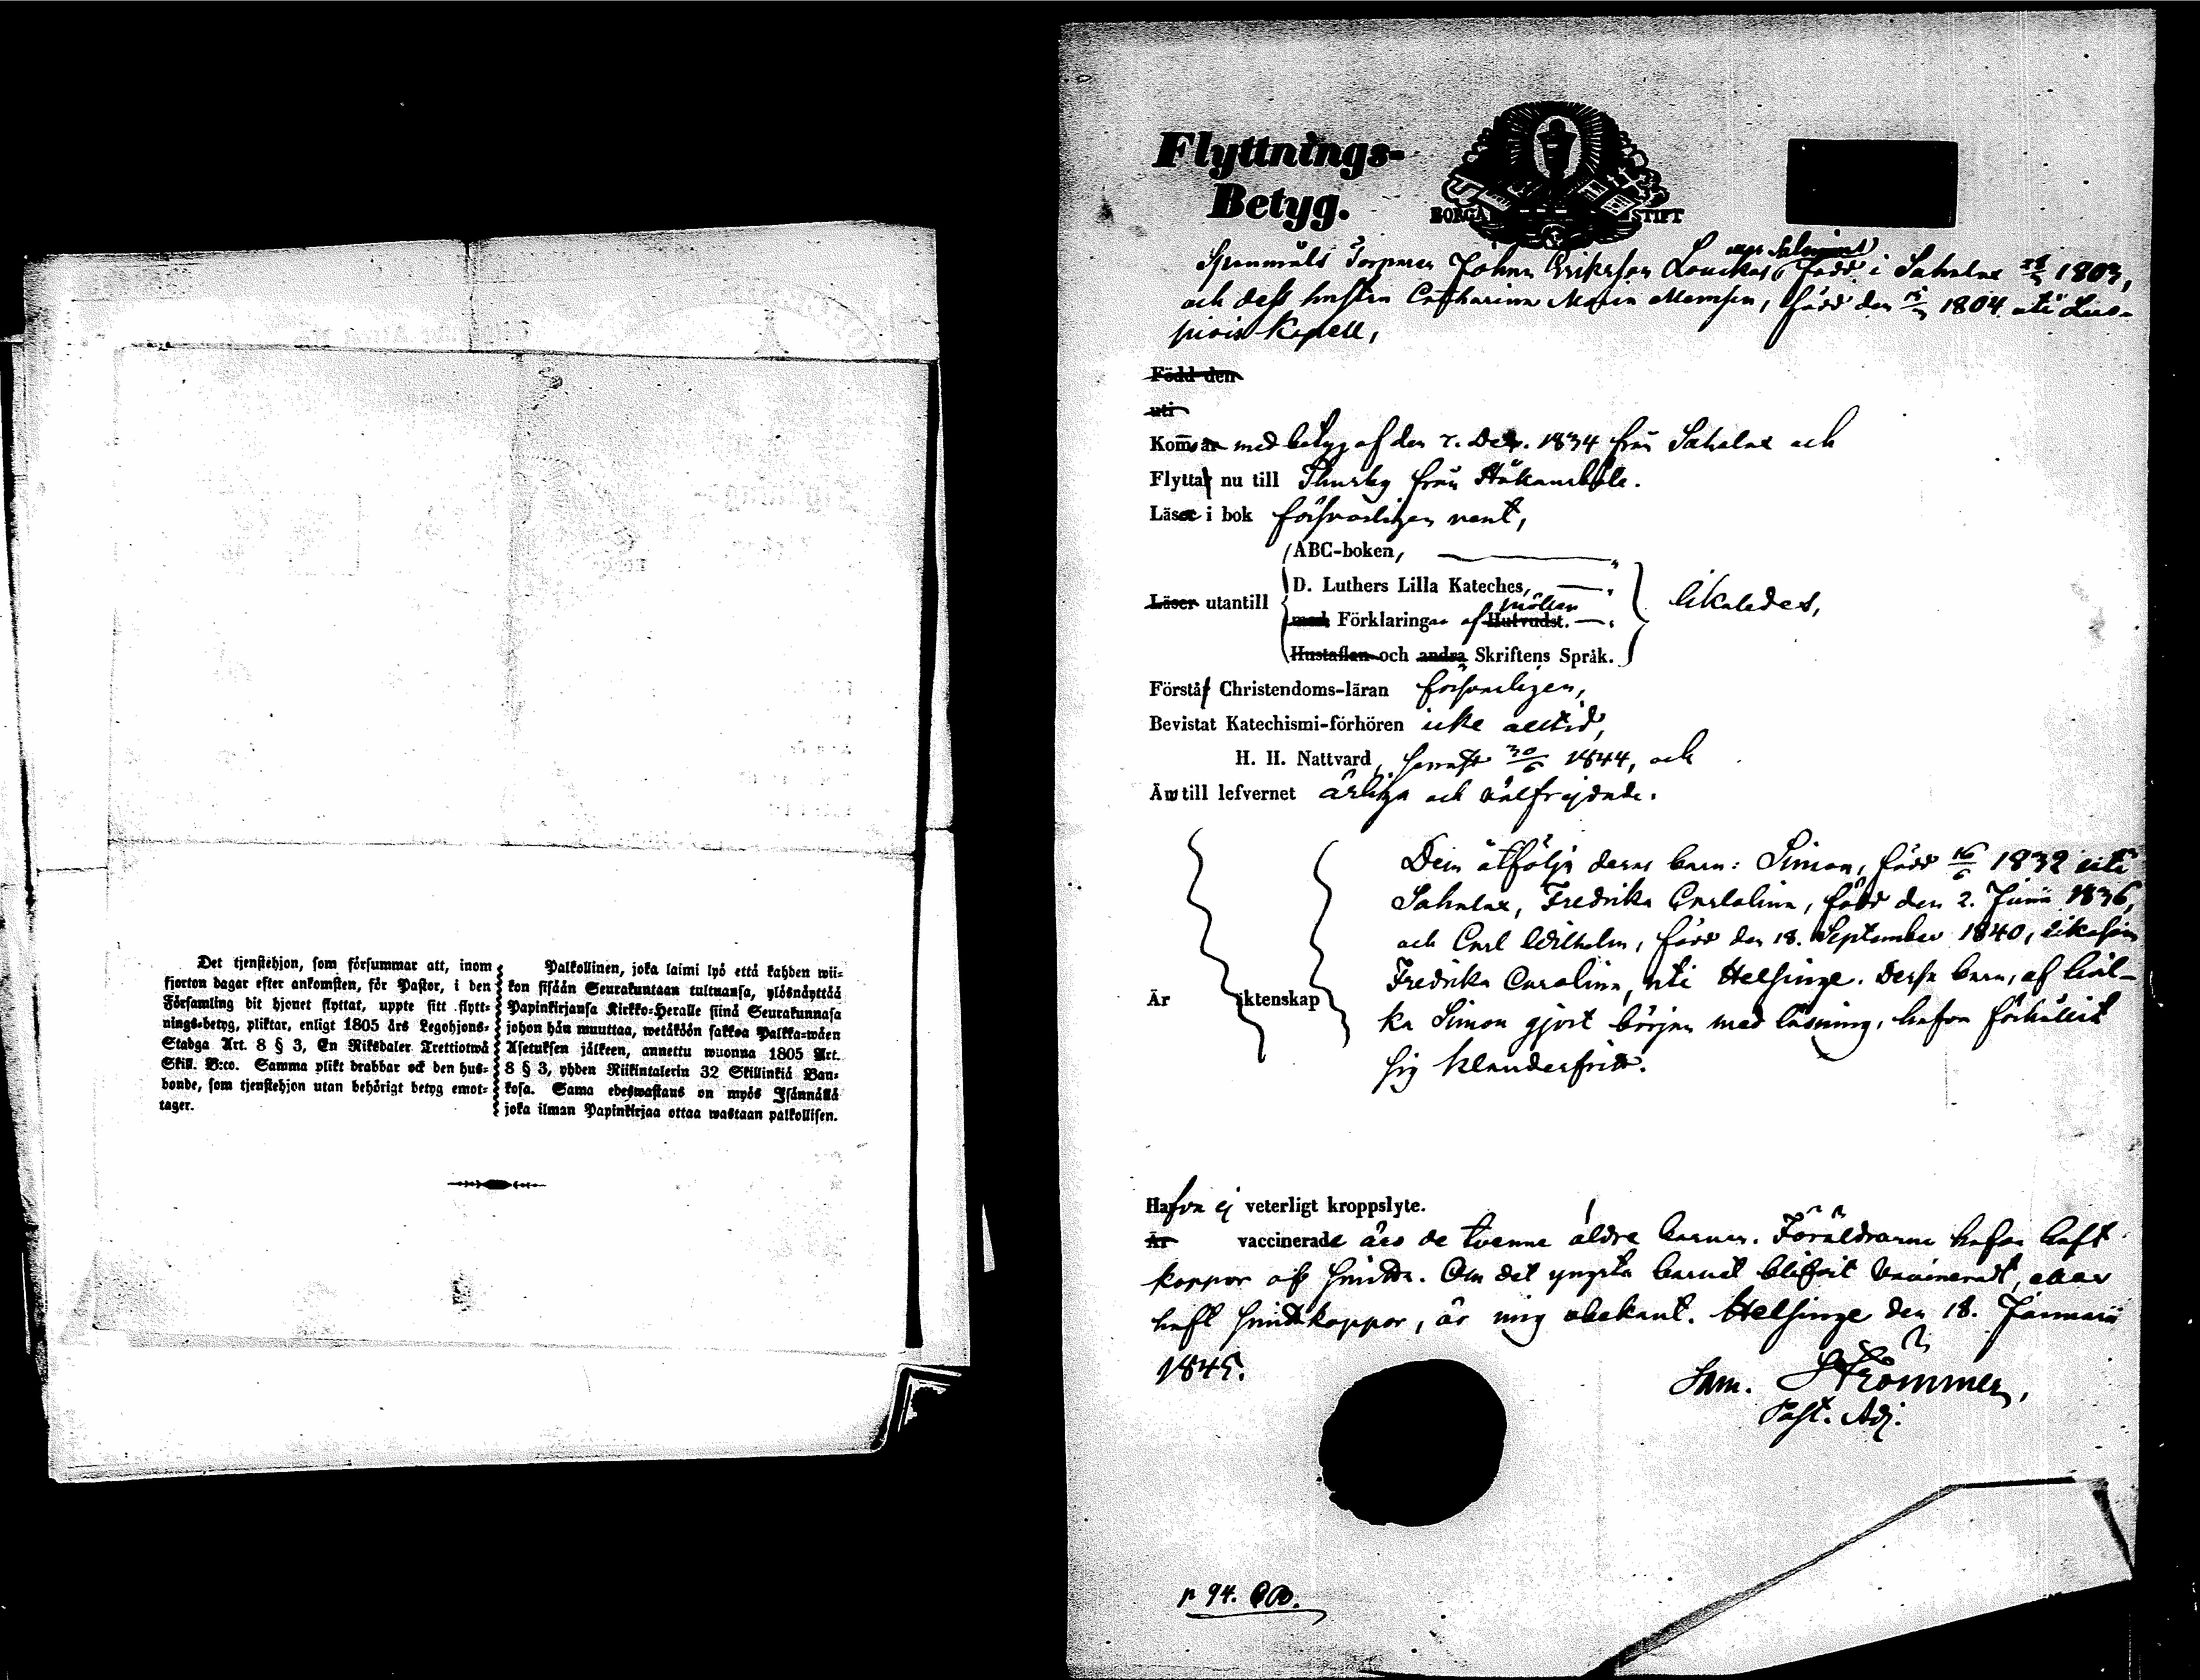 Det tjenstehjon, som försummar att, inom
fjorton dagar efter ankomsten, för Pastor, i den
Församling dit hjonet flyttat, uppte sitt flytt-
nings-betyg, pliktar, enligt 1805 års Legohjons-
Stadga Art. 8 § 3, En Riksdaler Trettiotwå
Skill. B:co. Samma plikt drabbar ock den hus-
bonde, som tjenstehjon utan behörigt betyg emot-
tager.
Palkollinen, joka laimi lyö että kahden wii-
kon sisään Seurakuntaan tultuansa, ylösnäyttää
Papinkirjansa Kirkko-Heralle siinä Seurakunnasa
johon hän muuttaa, wetäköön sakkoa Palkka-wäen
Asetuksen jälkeen, annettu wuonna 1805 Art.
8 § 3, yhden Riikintalerin 32 Skillinkiä Ban-
kosa. Sama edeswastaus on myös Isännällä
joka ilman Papinkirjaa ottaa wastaan palkollisen.
Flyttnings-
Betyg.
BORGÅ STIFT
Torparen Johan Eriksson född i Sahalax 1803,
och dess hustru Catharina Maria född den 1804 uti Luo-
piois Kapell,
Född den
uti
Kom̄ med betyg af den 7. Dec. 1834 från Sahalax och
Flytta nu till Thusby från Håkansböle.
Läser i bok försvarligen rent,
ABC-boken,
D. Luthers Lilla Kateches,
Läser utantill likaledes,
med Förklaringar af Hufvudst.
Hustaflan och andra Skriftens Språk.
Förstå Christendoms-läran försvarligen,
Bevistat Katechismi-förhören icke alltid,
H. H. Nattvard senast 30/6 1844, och
Äro till lefvernet ärliga och välfrejdade.
Dem åtfölja deras barn: Simon, född 16/6 1832 uti
Sahalax, Fredrika Carolina, född den 2. Junii 1836,
och Carl Wilhelm, född den 18. September 1840, likasom
Fredrika Carolina, uti Helsinge. Dessa barn, af hvil-
Är äktenskap
ka Simon gjort början med läsning, hafva förhållit
sig klanderfritt.
Hafva ej veterligt kroppslyte.
Är vaccinerade äro de tvenne äldre barnen. Föräldrarne hafva haft
koppor af smitta. Om det yngsta barnet blifvit vaccineradt, eller
haft smittkoppor, är mig obekant. Helsinge den 18. Januarii
1845.
Sam. Strömmer,
Past. Adj.
p 94.